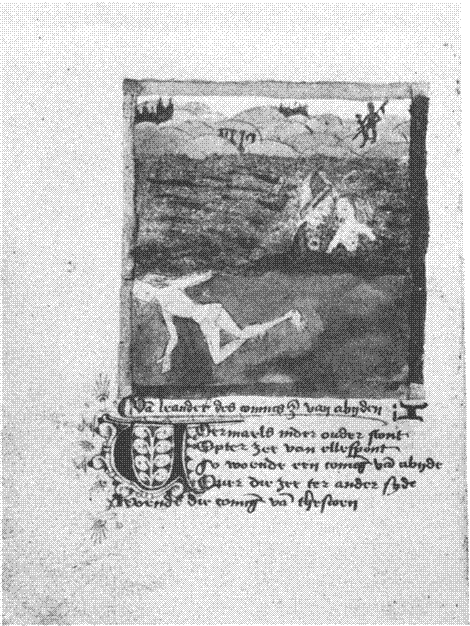 Vā leander des conincs zō van abyden
Uoermaels inder ouder stont
Opter zee van ellespont
So woende een coninc vā abyde
Ouer die zee ter ander syde
Woende die coninc vā